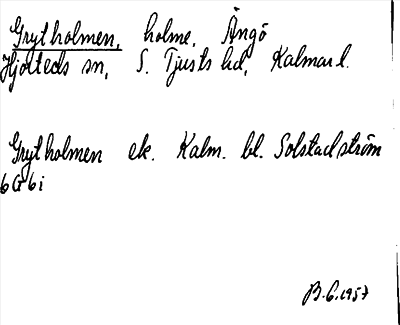 Grytholmen, holme, Ängö
Hjorteds sn, S. Tjusts hd, Kalmar l.
Grytholmen ek. Kalm. bl. Solstadström
6G6i
B.G.1957